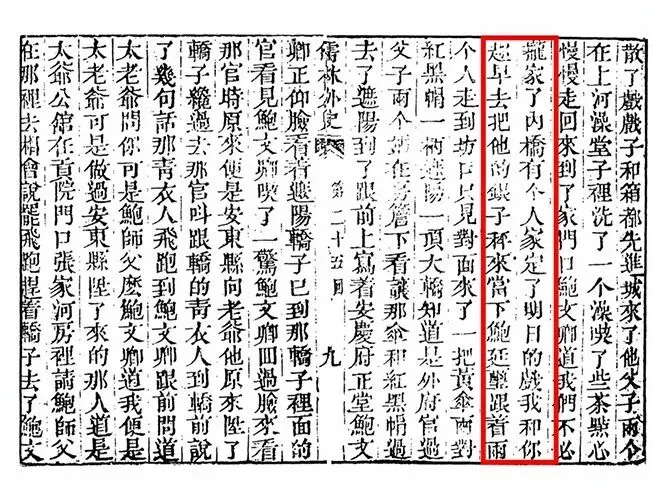 散了戲戲子和箱都先進城來了他父子兩个
在上河澡堂子裡洗了一个澡喫了些茶點心
慢慢走回來到了家門口鮑文卿道我們不必
攏家了內橋有个人家定了明日的戲我和你
趂早去把他的銀子秤來當下鮑廷璽跟着兩
个人走到坊口只見對面來了一把黃傘兩對
紅黑帽一柄遮陽一頂大轎知道是外府官過
父子兩个站在房簷下看讓那傘和紅黑帽過
去了遮陽到了跟前上寫着安慶府正堂鮑文
儒林外史 第二十五回 九
卿正仰臉看着遮陽轎子已到那轎子裡面的
官看見鮑文卿喫了一驚鮑文卿回過臉來看
那官時原來便是安東縣向老爺他原來陞了
轎子纔過去那官叫跟轎的青衣人到轎前說
了幾句話那青衣人飛跑到鮑文卿跟前問道
太老爺問你可是鮑師父麼鮑文卿道我便是
太老爺可是做過安東縣陞了來的那人道是
太爺公館在貢院門口張家河房裡請鮑師父
在那裡去相會說罷飛跑趕着轎子去了鮑文